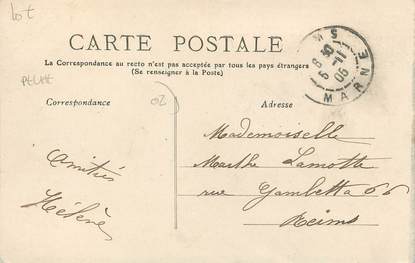 Lot
CARTE POSTALE
La Correspondance au recto n'est pas acceptée par tous les pays étrangers
(Se renseigner à la Poste)
MS
MARNE
Correspondance
02
Adresse
Mademoiselle
Marthe Lamotte
rue Gambetta 66
Reims
Amitiés
Hélène